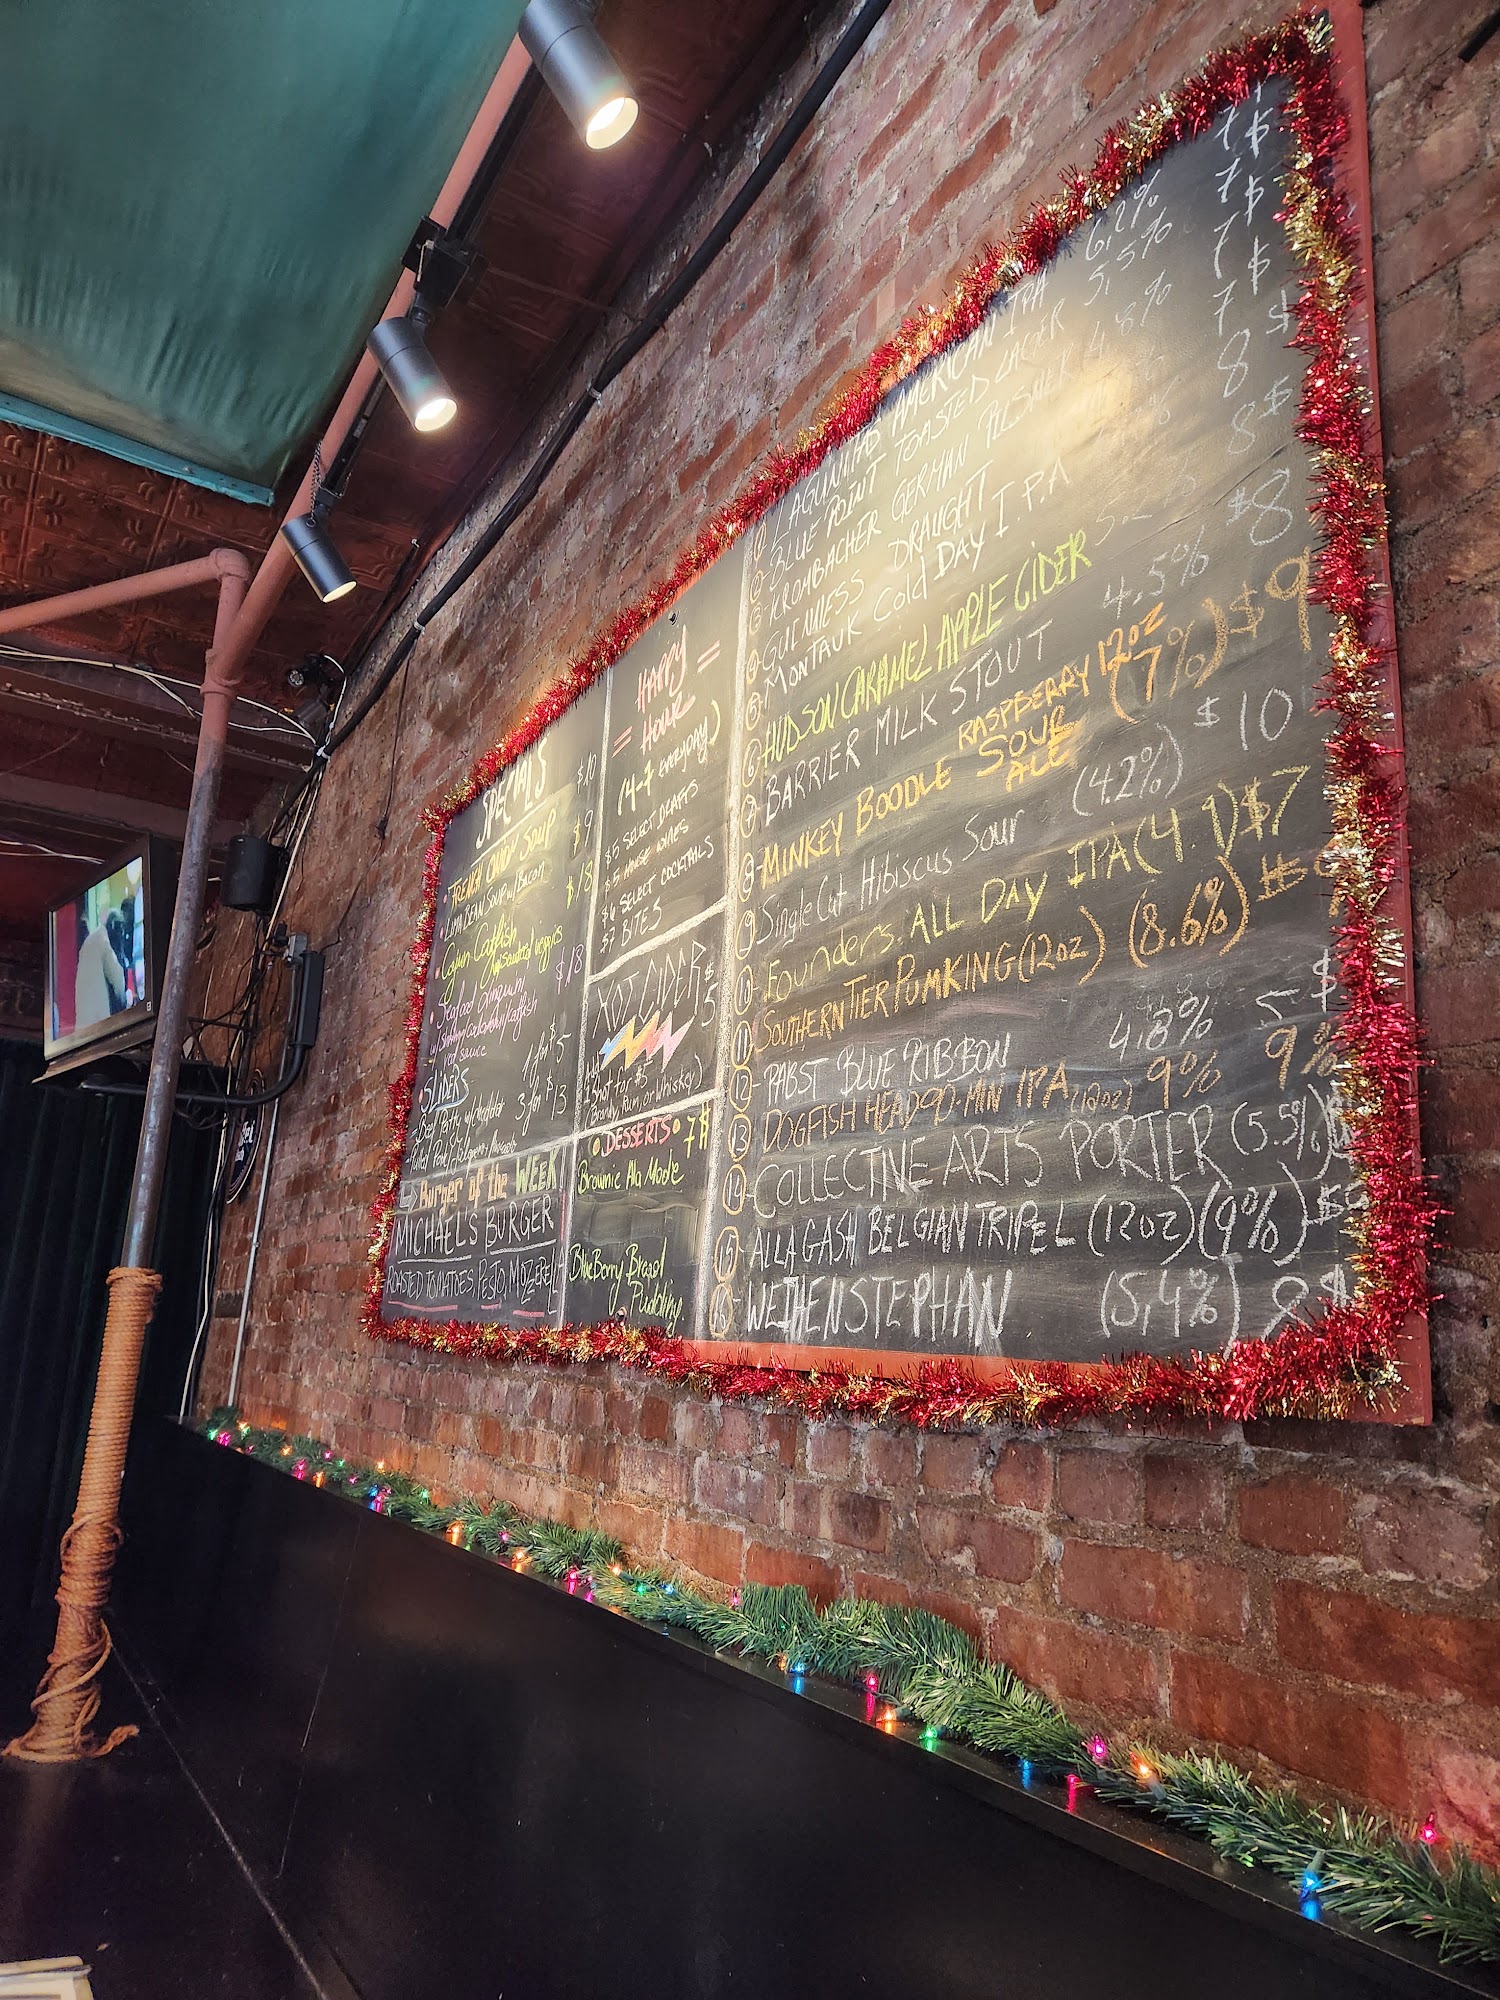 SPECIALS
• FRENCH ONION SOUP $10
• LIMA BEAN SOUP w/ BACON $9
• Cajun Catfish $18
w/ sauteed veggies
• Seafood $18
w/ Shrimp/ /Catfish
red sauce
SLIDERS 1 for $5
- Beef Patty w/ cheddar 3 for $13
Pulled Pork/Jalapenos/
Burger of the WEEK
MICHAEL'S BURGER
ROASTED TOMATOES, PESTO, MOZERELL
= HAPPY =
= HOUR
(4-7 EVERYDAY)
$5 SELECT DRAFTS
$5 HOUSE WINES
$6 SELECT COCKTAILS
$7 BITES
HOT CIDER $5
Add
1 Shot for $5
(Brandy, Rum, or Whiskey)
• DESSERTS • 7$
Brownie Ala Mode
BlueBerry Bread
Pudding
1 LAGUNITAS AMERICAN IPA 6,2% 7$
2 BLUE POINT TOASTED LAGER 5,5% 7$
3 KROMBACHER GERMAN PILSNER 4,8% 7$
4 GUENNESS DRAUGHT 7$
5 MONTAUK Cold DAY I.P.A 8$
6 HUDSON CARAMEL APPLE CIDER 8$
7 BARRIER MILK STOUT 4.5% $8
8 MINKEY BOODLE RASPBERRY 12oz
SOUR (7%) $9
ALE
9 SingleCut Hibiscus Sour (4.2%) $10
10 Founders: ALL DAY IPA (4.9) $7
11 SOUTHERN TIER PUMKING (12oz) (8.6%)
12 PABST BLUE RIBBON 4.8% 5$
13 DOGFISH HEAD 90-MIN IPA (12oz) 9% 9$
14 COLLECTIVE ARTS PORTER (5.5%)
15 ALLAGASH BELGIAN TRIPEL (12oz) (9%) $9
16 WEIHENSTEPHAN (5,4%) 8$